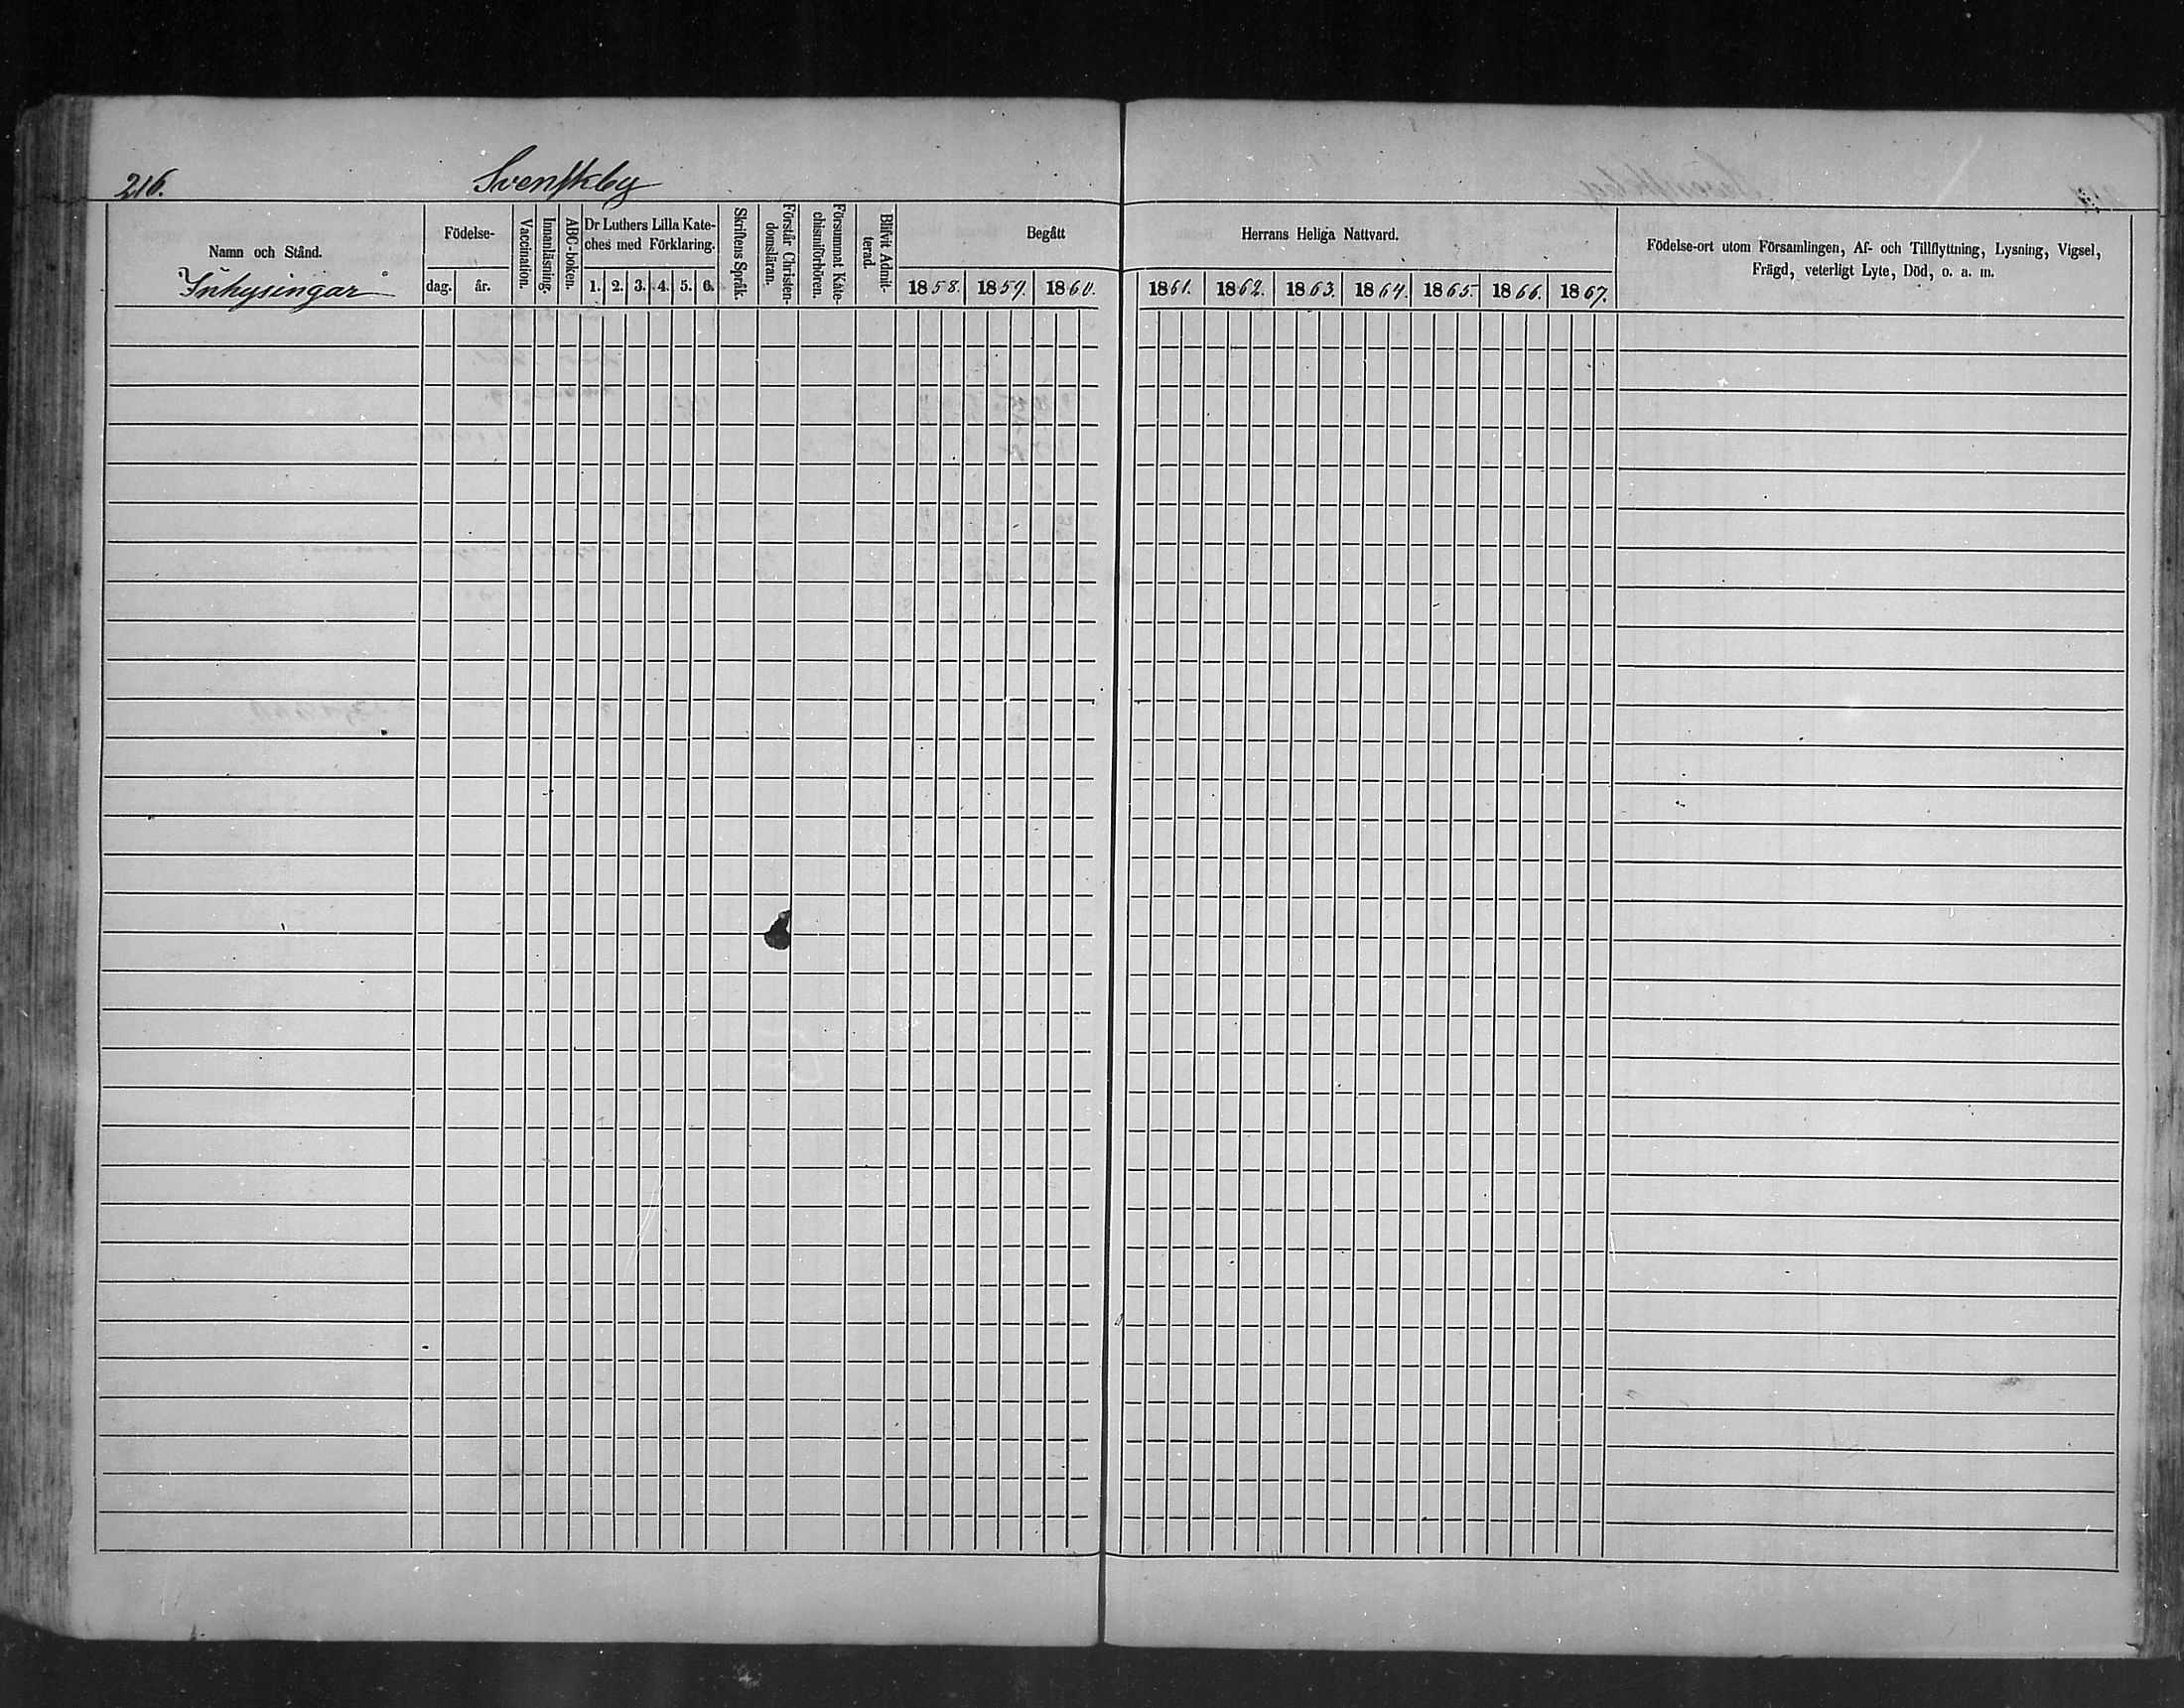 216.
Svenskby
Namn och Stånd.
Inhysingar
Födelse-
dag. år.
Vaccination.
Innanläsning.
ABC-boken.
Dr Luthers Lilla Kate-
ches med Förklaring.
1. 2. 3. 4. 5. 6.
Skriftens Språk.
Förstår Christen-
domsläran.
Försummat Kate-
chismiförhören.
Blifvit Admit-
terad.
Begått Herrans Heliga Nattvard.
1858. 1859. 1860. 1861. 1862. 1863. 1864. 1865. 1866. 1867.
Födelse-ort utom Församlingen, Af- och Tillflyttning, Lysning, Vigsel,
Frägd, veterligt Lyte, Död, o. a. m.